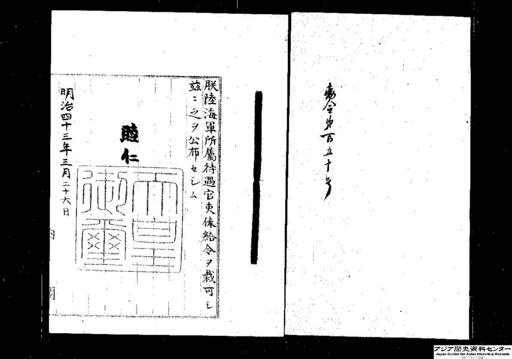 勅令第百五十号
朕陸海軍所属待遇官吏俸給令ヲ裁可シ
茲ニ之ヲ公布セシム
睦仁
天皇御璽
明治四十三年三月二十六日
内閣
アジア歴史資料センター
Japan Center for Asian Historical Records